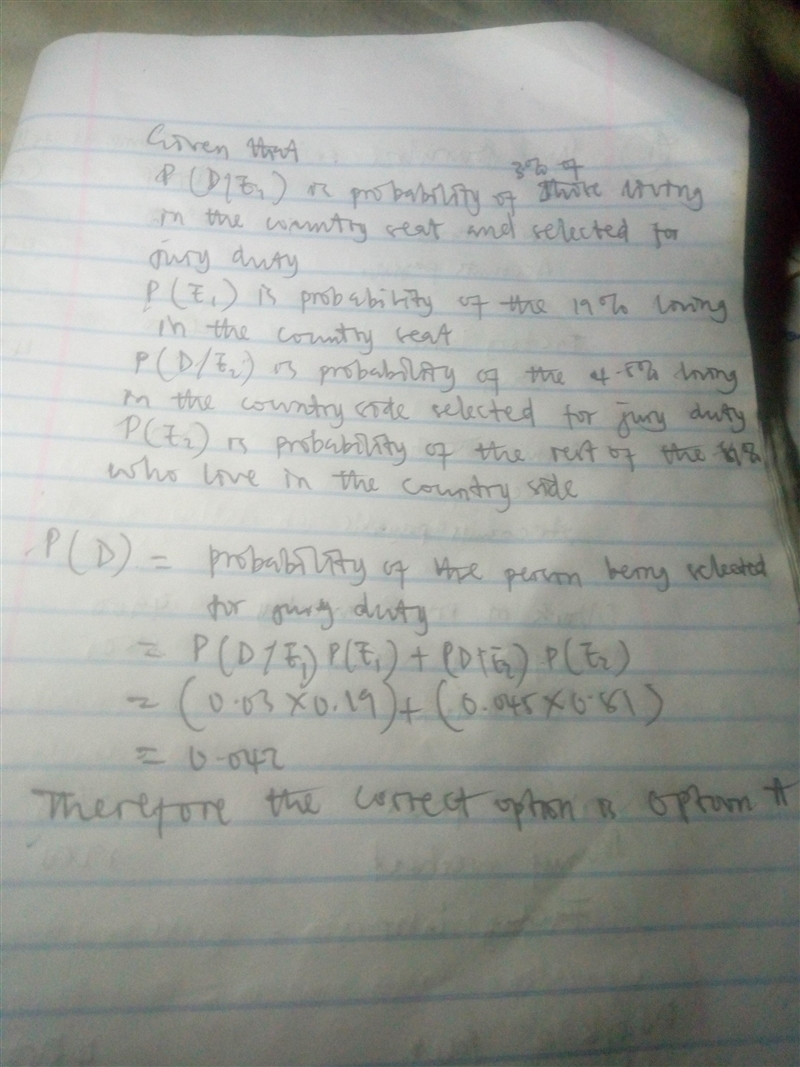 Given that
3% of
P(D/E1) is probability of those living
in the country seat and selected for
jury duty
P(E1) is probability of the 19% living
in the country seat
P(D/E2) is probability of the 4.5% living
in the country side selected for jury duty
P(E2) is probability of the rest of the
who live in the country side
P(D) = probability of the person being selected
for jury duty
= P(D/E1) P(E1) + P(D/E2) P(E2)
= (0.03 × 0.19) + (0.045 × 0.81)
= 0.042
Therefore the correct option is option A